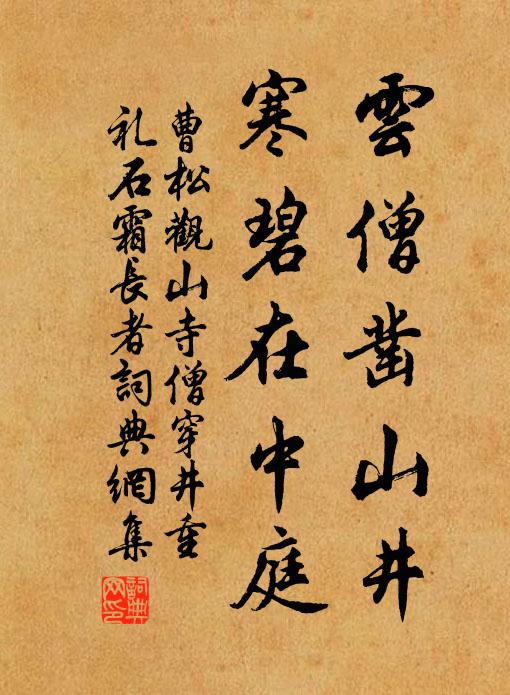 雲僧凿山井
寒碧在中庭
曹松觀山寺僧穿井重
礼石霜長者詞典網集
詞典